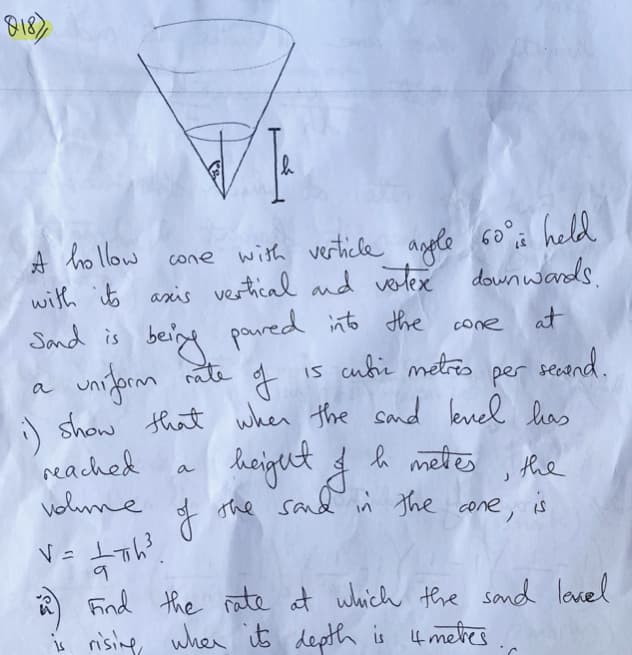 Q18)
30°
h
A hollow cone with verticle angle 60° is held
with its axis vertical and vertex downwards.
Sand is being poured into the cone at
a uniform rate of 15 cubic metres per second.
i) show that when the sand level has
reached a height of h metes, the
volume of the sand in the cone, is
V = 1/9 πh³.
ii) Find the rate at which the sand level
is rising, when its depth is 4 metres.